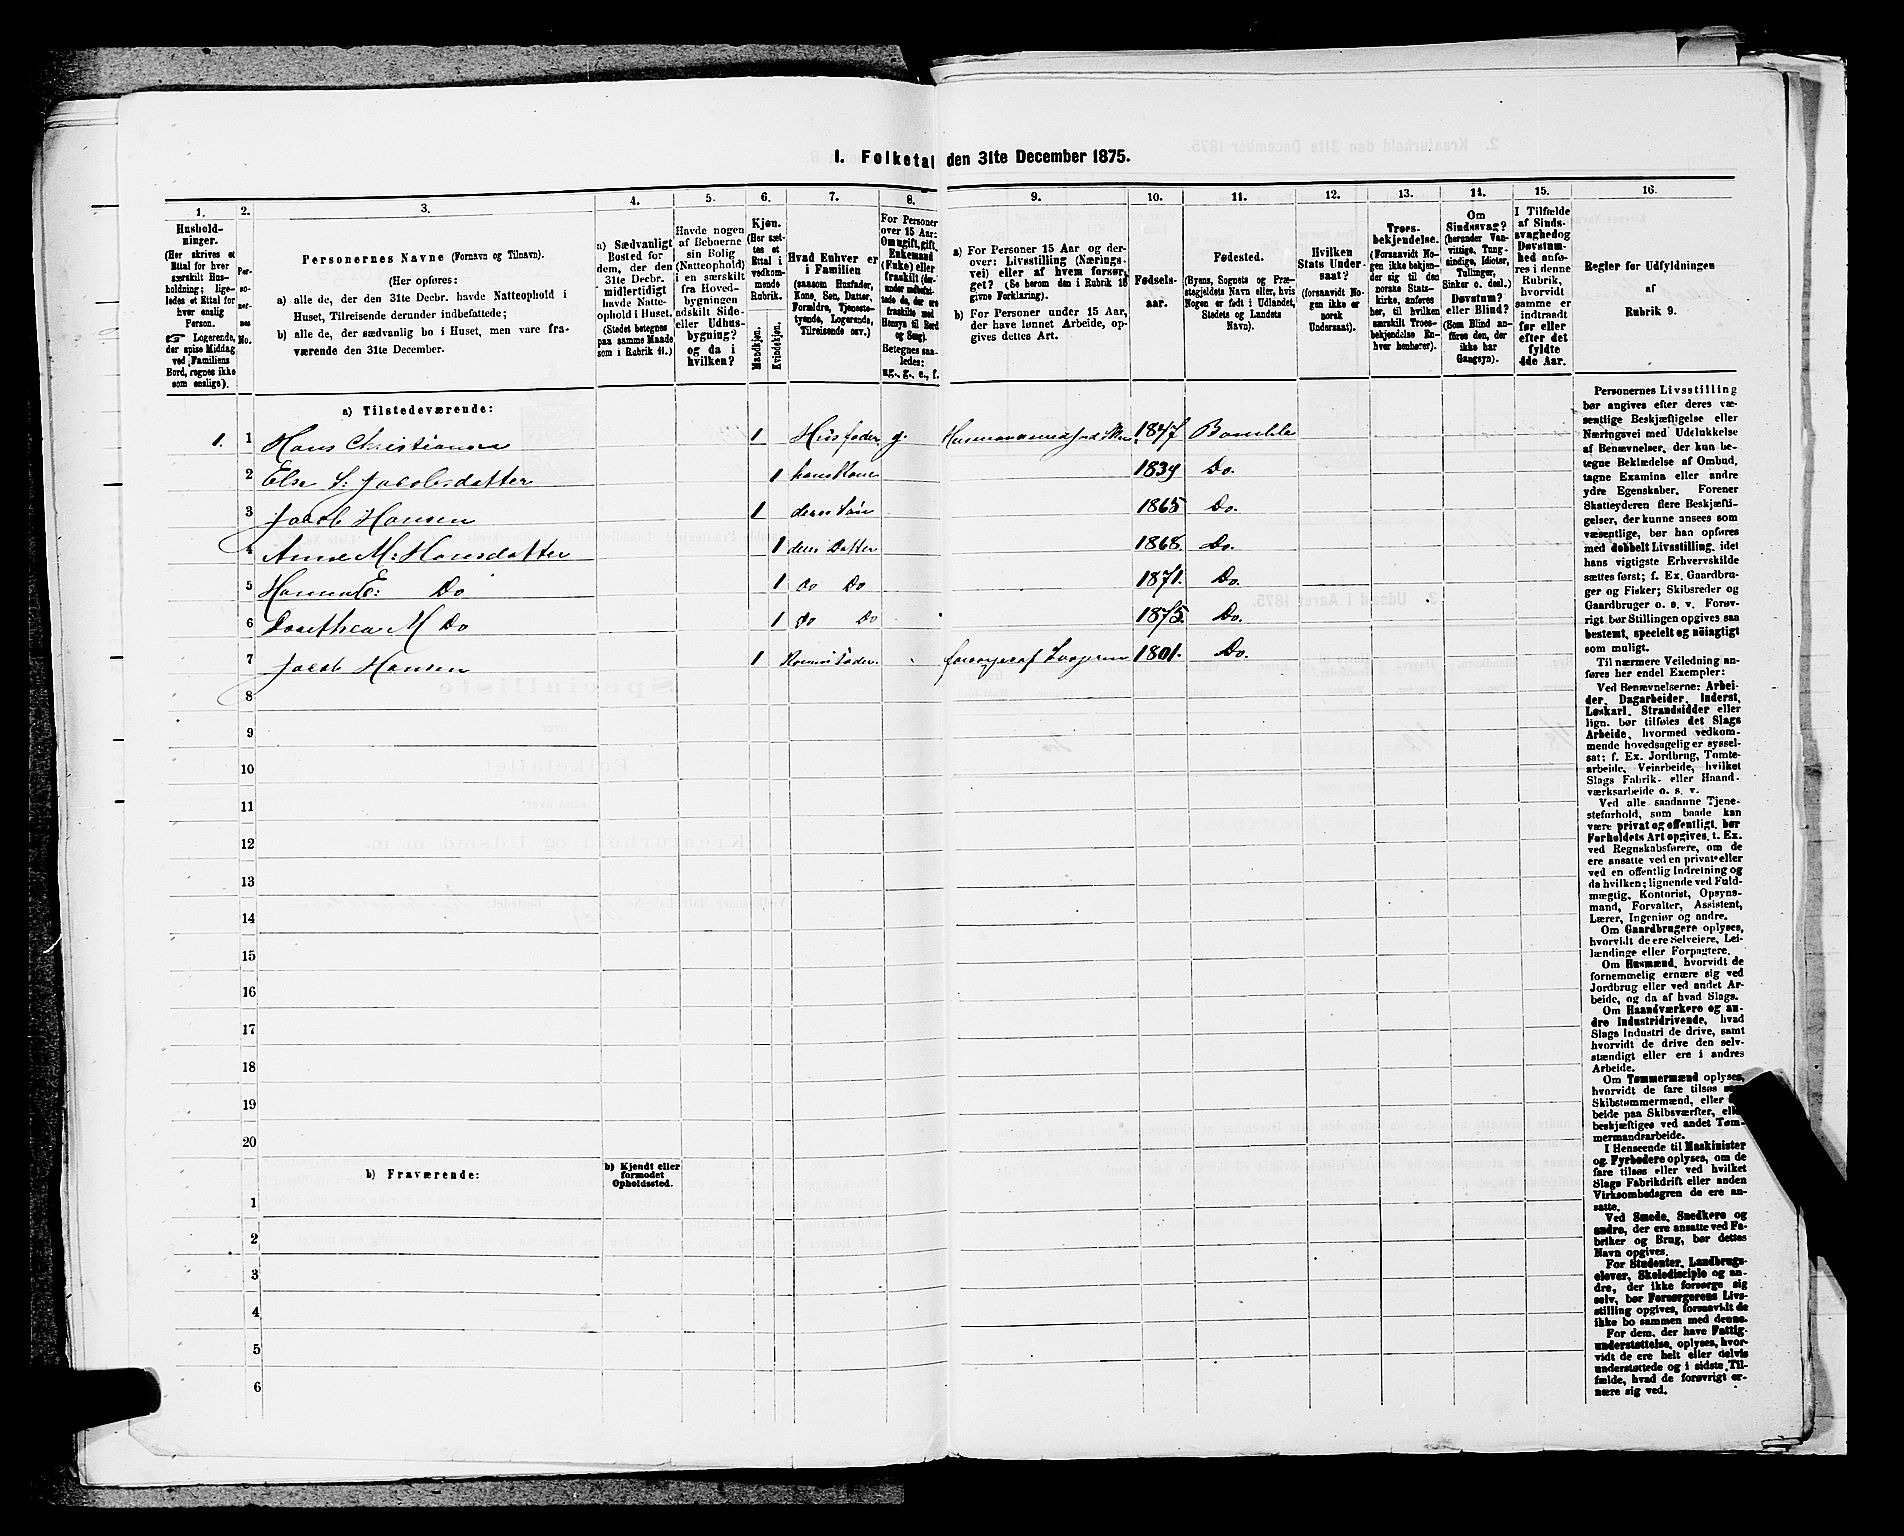 I. Folketal den 31te December 1875.
1.
Hushold-
ninger.
(Her skrives et
Ettal for hver
særskilt Hus-
holdning; lige-
ledes et Ettal for
hver enslig
Person.
☞ Logerende,
der spise Middag
ved Familiens
Bord, regnes ikke
som enslige).
2.
Per-
so-
ner-
nes
No.
3.
Personernes Navne (Fornavn og Tilnavn).
(Her opføres:
a) alle de, der den 31te Decbr. havde Natteophold i
Huset, Tilreisende derunder indbefattede;
b) alle de, der sædvanlig bo i Huset, men vare fra-
værende den 31te December.
4.
a) Sædvanligt
Bosted for
dem, der den
31te Decbr.
midlertidigt
havde Natte-
ophold i Huset.
(Stedet betegnes
paa samme Maade
som i Rubrik 11.)
5.
Havde nogen
af Beboerne
sin Bolig
(Natteophold)
i en særskilt
fra Hoved-
bygningen
adskilt Side-
eller Udhus-
bygning?
og da i
hvilken?
6.
Kjøn.
(Her sæt-
tes et
Ettal i
vedkom-
mende
Rubrik.
Mandkjøn.
Kvindekjøn.
7.
Hvad Enhver er
i Familien
(saasom Husfader,
Kone, Søn, Datter,
Forældre, Tjeneste-
tyende, Logerende,
Tilreisende osv.)
8.
For Personer
over 15 Aar:
Om ugift, gift,
Enkemand
(Enke) eller
fraskilt
Betegnes saa-
ledes:
ug., g., e., f.
9.
a) For Personer 15 Aar og der-
over: Livsstilling (Nærings-
vei) eller af hvem forsør-
get? (Se herom den i Rubrik 16
givne Forklaring).
b) For Personer under 15 Aar,
der have lønnet Arbeide, op-
gives dettes Art.
10.
Fødsels-
aar.
11.
Fødested.
(Byens, Sognets og Præ-
stegjeldets Navn eller, hvis
Nogen er født i Udlandet,
Stedets og Landets
Navn).
12.
Hvilken
Stats Under-
saat?
(forsaavidt No-
gen ikke er
norsk
Undersaat).
13.
Troes-
bekjendelse.
(Forsaavidt No-
gen ikke bekjen-
der sig til den
norske Stats-
kirke, anføres
her, til hvilken
særskilt Troes-
bekjendelse En-
hver henhører).
14.
Om
Sindssvag?
(herunder Van-
vittige, Tung-
sindige, Idioter,
Tullinger,
Sinker o. desl.).
Døvstum?
eller Blind?
(Som Blind an-
føres den, der
ikke har
Gangsyn).
15.
I Tilfælde
af Sinds-
svaghed og
Døvstum-
hed anfø-
res i denne
Rubrik,
hvorvidt
samme er
indtraadt
før eller
efter det
fyldte
4de Aar.
16.
Regler for Udfyldningen
af
Rubrik 9.
a) Tilstedeværende:
1. 1 Hans Christiansen 1 Husfader g. 1847 Bamble
2 Else S: Jacobsdatter 1 hans Kone 1839 Do.
3 Jacob Hansen 1 deres Søn 1865 Do.
4 Anne M: Hansdatter 1 deres Datter 1868. Do.
5 E: Do 1 Do Do 1871. Do.
6 Dorethea M Do 1 Do Do 1875. Do.
7 Jacob Hansen 1 Fader. 1801. Do.
8
9
10
11
12
13
14
15
16
17
18
19
20
b) Fraværende:
b) Kjendt eller
formodet
Opholdssted.
1
2
3
4
5
6
Personernes Livsstilling
bør angives efter deres væ-
sentlige Beskjæftigelse eller
Næringsvei med Udelukkelse
af Benævnelser, der kun be-
tegne Beklædelse af Ombud,
tagne Examina eller andre
ydre Egenskaber. Forener
Skatteyderen flere Beskjæfti-
gelser, der kunne ansees som
væsentlige, bør han opføres
med dobbelt Livsstilling, idet
hans vigtigste Erhvervskilde
sættes først; f. Ex. Gaardbru-
ger og Fisker; Skibsreder og
Gaardbruger o. s. v. Forøv-
rigt bør Stillingen opgives saa
bestemt, specielt og nøiagtigt
som muligt.
Til nærmere Veiledning an-
føres her endel Exempler:
Ved Benævnelserne: Arbei-
der, Dagarbeider, Inderst,
Løskarl, Strandsidder eller
lign. bør tilføies det Slags
Arbeide, hvormed vedkom-
mende hovedsagelig er syssel-
sat; f. Ex. Jordbrug, Tomte-
arbeide, Veiarbeide, hvilket
Slags Fabrik- eller Haand-
værksarbeide o. s. v.
Ved alle saadanne Tjene-
steforhold, som baade kan
være privat og offentligt, bør
Forholdets Art opgives, t. Ex.
ved Regnskabsførere, om de
ere ansatte ved en privat eller
ved en offentlig Indretning og
da hvilken; lignende ved Fuld-
mægtig, Kontorist, Opsyns-
mand, Forvalter, Assistent,
Lærer, Ingeniør og andre.
Om Gaardbrugere oplyses,
hvorvidt de ere Selveiere, Lei-
lændinge eller Forpagtere.
Om Husmænd, hvorvidt de
fornemmelig ernære sig ved
Jordbrug eller ved andet Ar-
beide, og da af hvad Slags.
Om Haandværkere og an-
dre Industridrivende, hvad
Slags Industri de drive, samt
hvorvidt de drive den selv-
stændigt eller ere i andres
Arbeide.
Om Tømmermænd oplyses,
hvorvidt de fare tilsøs
Skibstømmermænd, eller
beide paa Skibsværfter,
beskjæftiges ved andet Tøm-
mermandsarbeide.
I Henseende til Maskinister
og Fyrbødere oplyses, om de
fare tilsøs eller ved hvilket
Slags Fabrikdrift eller anden
Virksomhedsgren de ere an-
satte.
Ved Smede, Snedkere og
andre, der ere ansatte ved Fa-
briker og Brug, bør dettes
Navn opgives.
For Studenter, Landbrugs-
elever, Skoledisciple og an-
dre, der ikke forsørge sig
selv, bør Forsørgerens Livs-
stilling opgives, forsaavidt de
ikke bo sammen med denne.
For dem, der have Fattig-
understøttelse, oplyses, hvor-
vidt de ere helt eller delvis
understøttede og i sidste Til-
fælde, hvad de forøvrigt er-
nære sig ved.